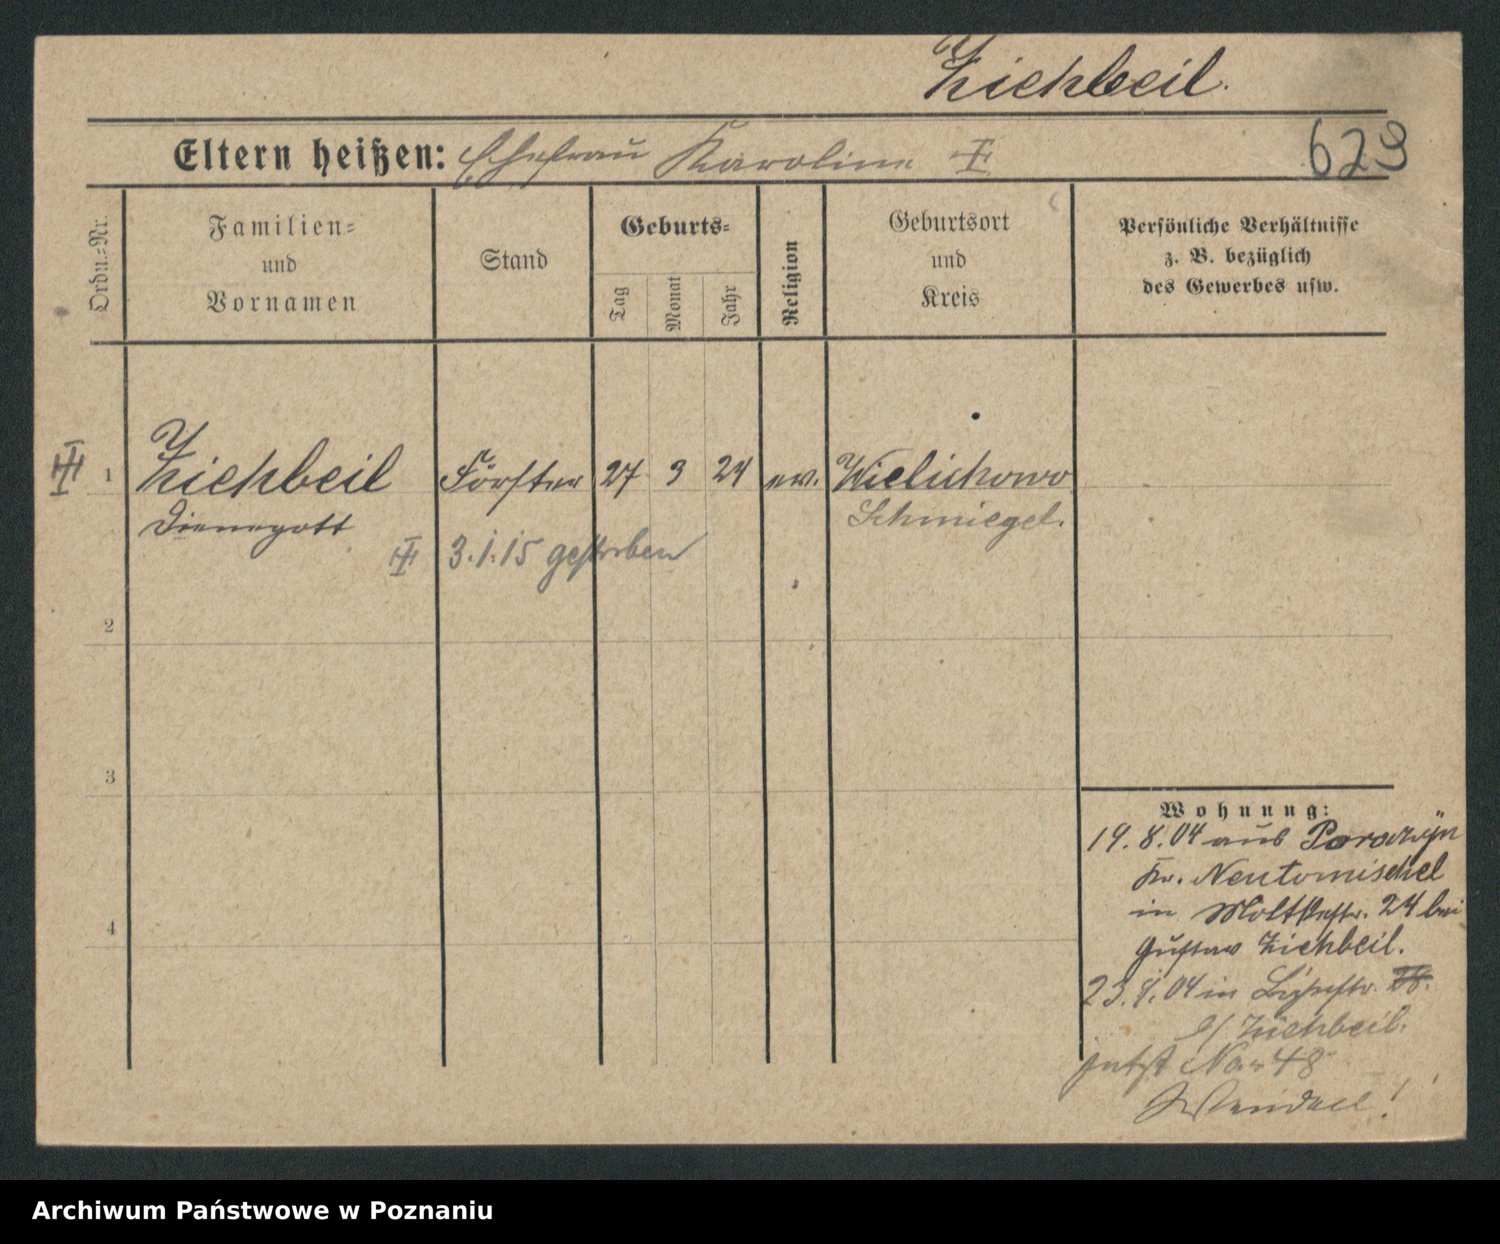 Zichbeil.
Eltern heißen: Ehefrau Karoline
629
Ordn.=Nr.
Familien=
und
Vornamen
Stand
Geburts=
Tag
Monat
Jahr
Religion
Geburtsort
und
Kreis
Persönliche Verhältnisse
z. B. bezüglich
des Gewerbes usw.
1 Zichbeil Förster 27 3 24 ev. Wielichowo
Dienegott Schmiegel.
3.1.15 gestorben
2
3
4
Wohnung:
19. 8. 04 aus Porazyn
Kr. Neutomischel
in Moltkestr. 24 bei
Gustav Zichbeil.
23. 9. 04 in
b/ Zichbeil.
jetzt No 48
Archiwum Państwowe w Poznaniu